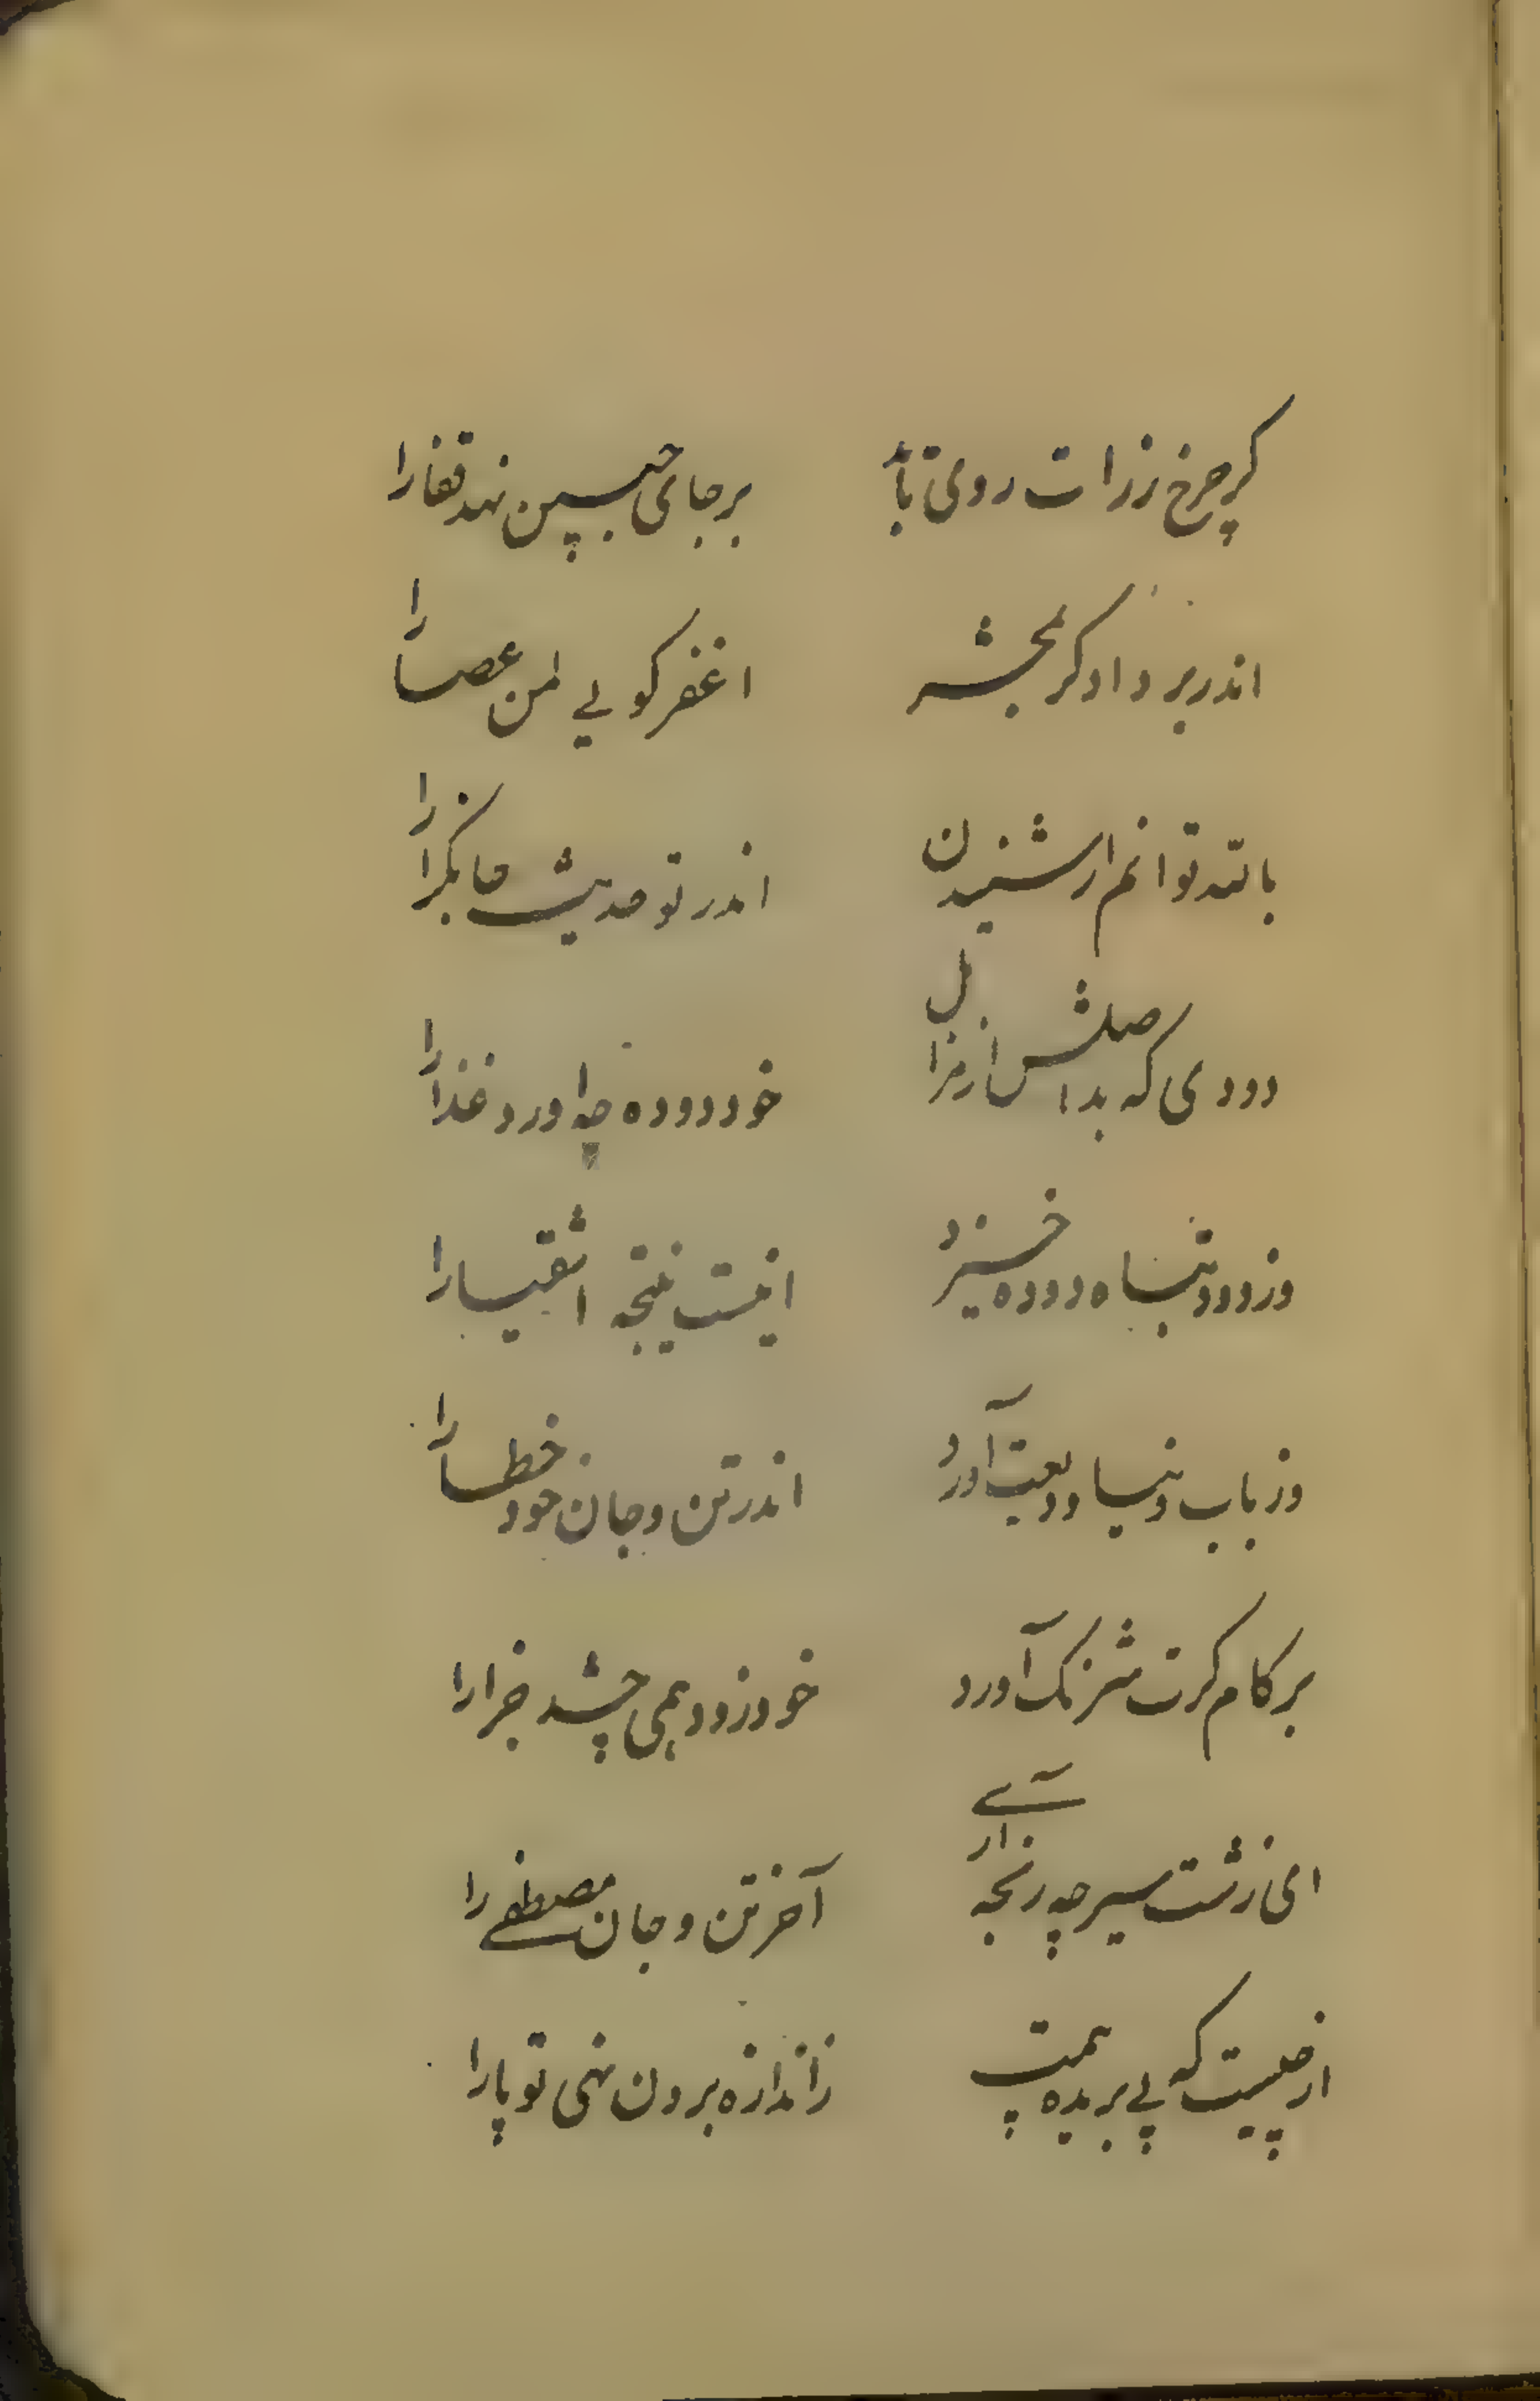 کر چرخ ززات روی تابد برجای جبین نهد قفا را
اندر بر دادکر بمحشر اغفر کویی لمن عصا را
بالله توانم ار شنیدن اندر تو حدیث جانکزا را
دودی که بد اصلش از مزابل خود دوده چه اورد غذا را
وز دود تباه دوده خیزد اینست نتیجه اشقیا را
وز باب و نیا ودیعت آورد اندر تن و جان خود خطا را
بر کام کرت شرنک آورد خود زود همی چشد جزا را
ای زشت سیر چه رنجه آری آخر تن و جان مصطفی را
از چیست که پی بریده همت ز اندازه برون نهی تو پا را